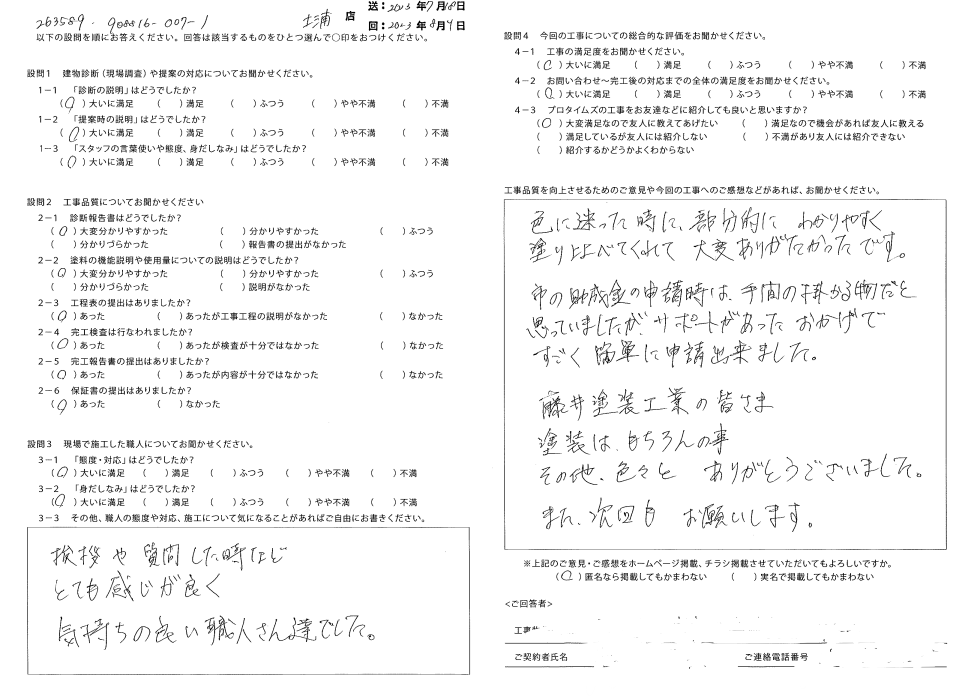 263589. 908816-007-1
土浦 店
送：2023年7月18日
回：2023年8月4日
以下の設問を順にお答えください。回答は該当するものをひとつ選んで○印をおつけください。
設問1 建物診断（現場調査）や提案の対応についてお聞かせください。
1－1 「診断の説明」はどうでしたか？
（○）大いに満足 （ ）満足 （ ）ふつう （ ）やや不満 （ ）不満
1－2 「提案時の説明」はどうでしたか？
（○）大いに満足 （ ）満足 （ ）ふつう （ ）やや不満 （ ）不満
1－3 「スタッフの言葉使いや態度、身だしなみ」はどうでしたか？
（○）大いに満足 （ ）満足 （ ）ふつう （ ）やや不満 （ ）不満
設問2 工事品質についてお聞かせください
2－1 診断報告書はどうでしたか？
（○）大変分かりやすかった （ ）分かりやすかった （ ）ふつう
（ ）分かりづらかった （ ）報告書の提出がなかった
2－2 塗料の機能説明や使用量についての説明はどうでしたか？
（○）大変分かりやすかった （ ）分かりやすかった （ ）ふつう
（ ）分かりづらかった （ ）説明がなかった
2－3 工程表の提出はありましたか？
（○）あった （ ）あったが工事工程の説明がなかった （ ）なかった
2－4 完工検査は行なわれましたか？
（○）あった （ ）あったが検査が十分ではなかった （ ）なかった
2－5 完工報告書の提出はありましたか？
（○）あった （ ）あったが内容が十分ではなかった （ ）なかった
2－6 保証書の提出はありましたか？
（○）あった （ ）なかった
設問3 現場で施工した職人についてお聞かせください。
3－1 「態度・対応」はどうでしたか？
（○）大いに満足 （ ）満足 （ ）ふつう （ ）やや不満 （ ）不満
3－2 「身だしなみ」はどうでしたか？
（○）大いに満足 （ ）満足 （ ）ふつう （ ）やや不満 （ ）不満
3－3 その他、職人の態度や対応、施工について気になることがあればご自由にお書きください。
挨拶や質問した時など
とても感じが良く
気持ちの良い職人さん達でした。
設問4 今回の工事についての総合的な評価をお聞かせください。
4－1 工事の満足度をお聞かせください。
（○）大いに満足 （ ）満足 （ ）ふつう （ ）やや不満 （ ）不満
4－2 お問い合わせ～完工後の対応までの全体の満足度をお聞かせください。
（○）大いに満足 （ ）満足 （ ）ふつう （ ）やや不満 （ ）不満
4－3 プロタイムズの工事をお友達などに紹介しても良いと思いますか？
（○）大変満足なので友人に教えてあげたい （ ）満足なので機会があれば友人に教える
（ ）満足しているが友人には紹介しない （ ）不満があり友人には紹介できない
（ ）紹介するかどうかよくわからない
工事品質を向上させるためのご意見や今回の工事へのご感想などがあれば、お聞かせください。
色に迷った時に、部分的に わかりやすく
塗り比べてくれて 大変ありがたかったです。
市の助成金の申請時は、手間の掛かる物だと
思っていましたが、サポートがあったおかげで
すごく簡単に申請出来ました。
藤井塗装工業の皆さま
塗装は、もちろんの事
その他、色々と ありがとうございました。
また、次回も お願いします。
※上記のご意見・ご感想をホームページ掲載、チラシ掲載させていただいてもよろしいですか。
（○）匿名なら掲載してもかまわない （ ）実名で掲載してもかまわない
<ご回答者>
工事
ご契約者氏名 ご連絡電話番号